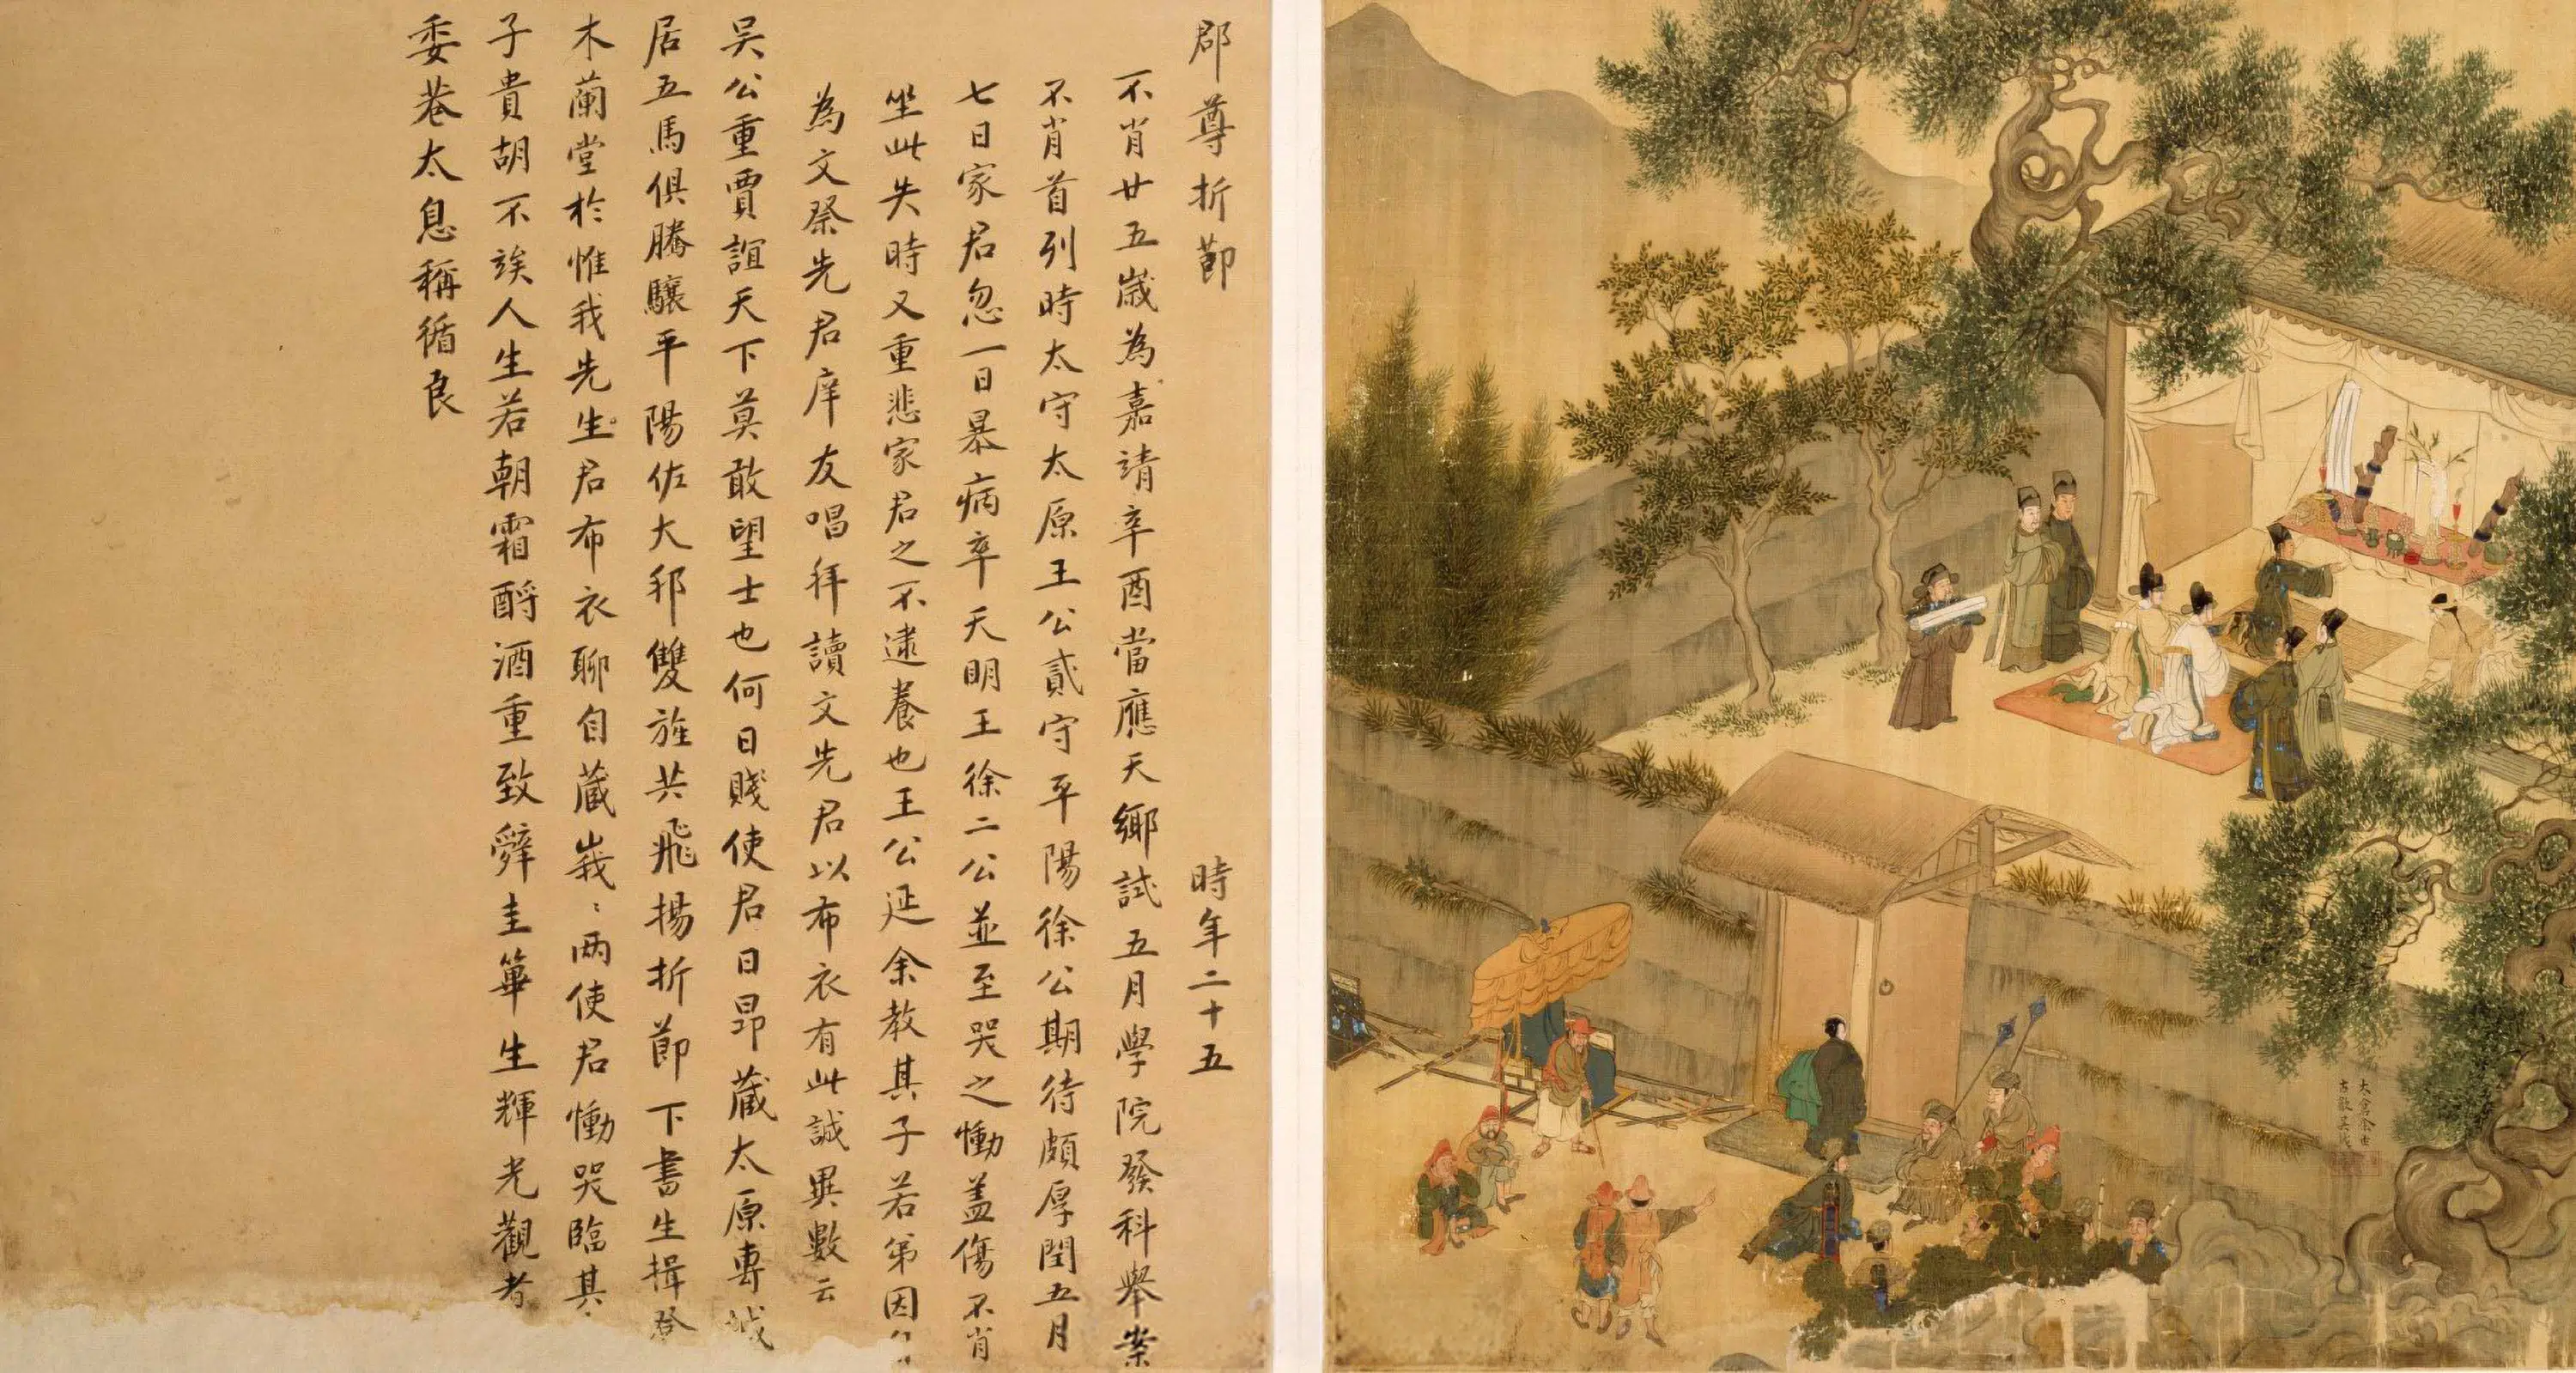 郡尊折節 時年二十五
不肖廿五歲為嘉靖辛酉當應天鄉試五月學院發科舉案
不肖首列時太守太原王公貳守平陽徐公期待頗厚閏五月
七日家君忽一日暴病卒天明王徐二公並至哭之慟盖傷不肖
坐此失時又重悲家君之不逮養也王公延余教其子若弟因
為文祭先君庠友唱拜讀文先君以布衣有此誠異數云
吳公重賈誼天下莫敢望士也何日賤使君日昂藏太原專城
居五馬俱騰驤平陽佐大邦雙旌共飛揚折節下書生揖登
木蘭堂於惟我先生君布衣聊自藏峩〻兩使君慟哭臨其
子貴胡不俟人生若朝霜酹酒重致辭圭蓽生輝光觀者
委巷太息稱循良